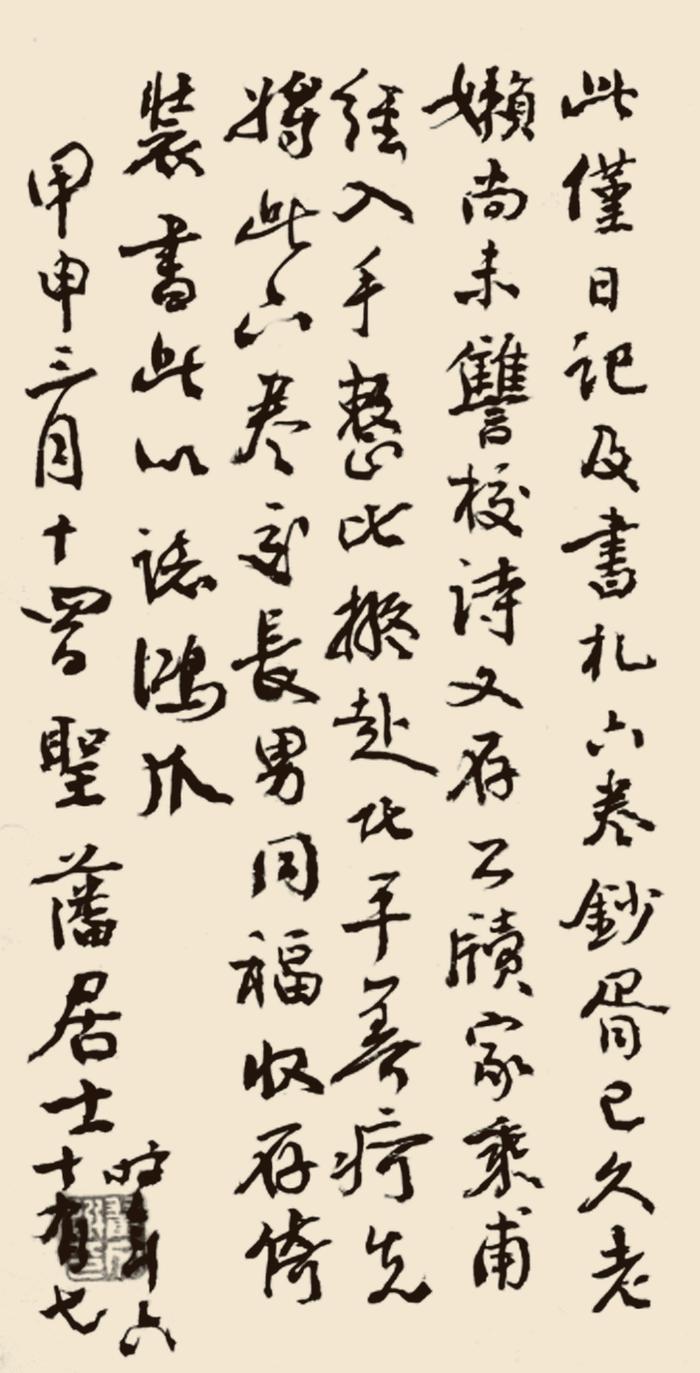 此僅日記及書札六卷鈔胥已久老
嬾尚未讐校詩文存公牘家乘甫
經入手整比擬赴北平養疴先
將此六卷交長男同福收存倩
裝書此以誌鴻爪
甲申三月十四日聖藩居士
時年六
十有七